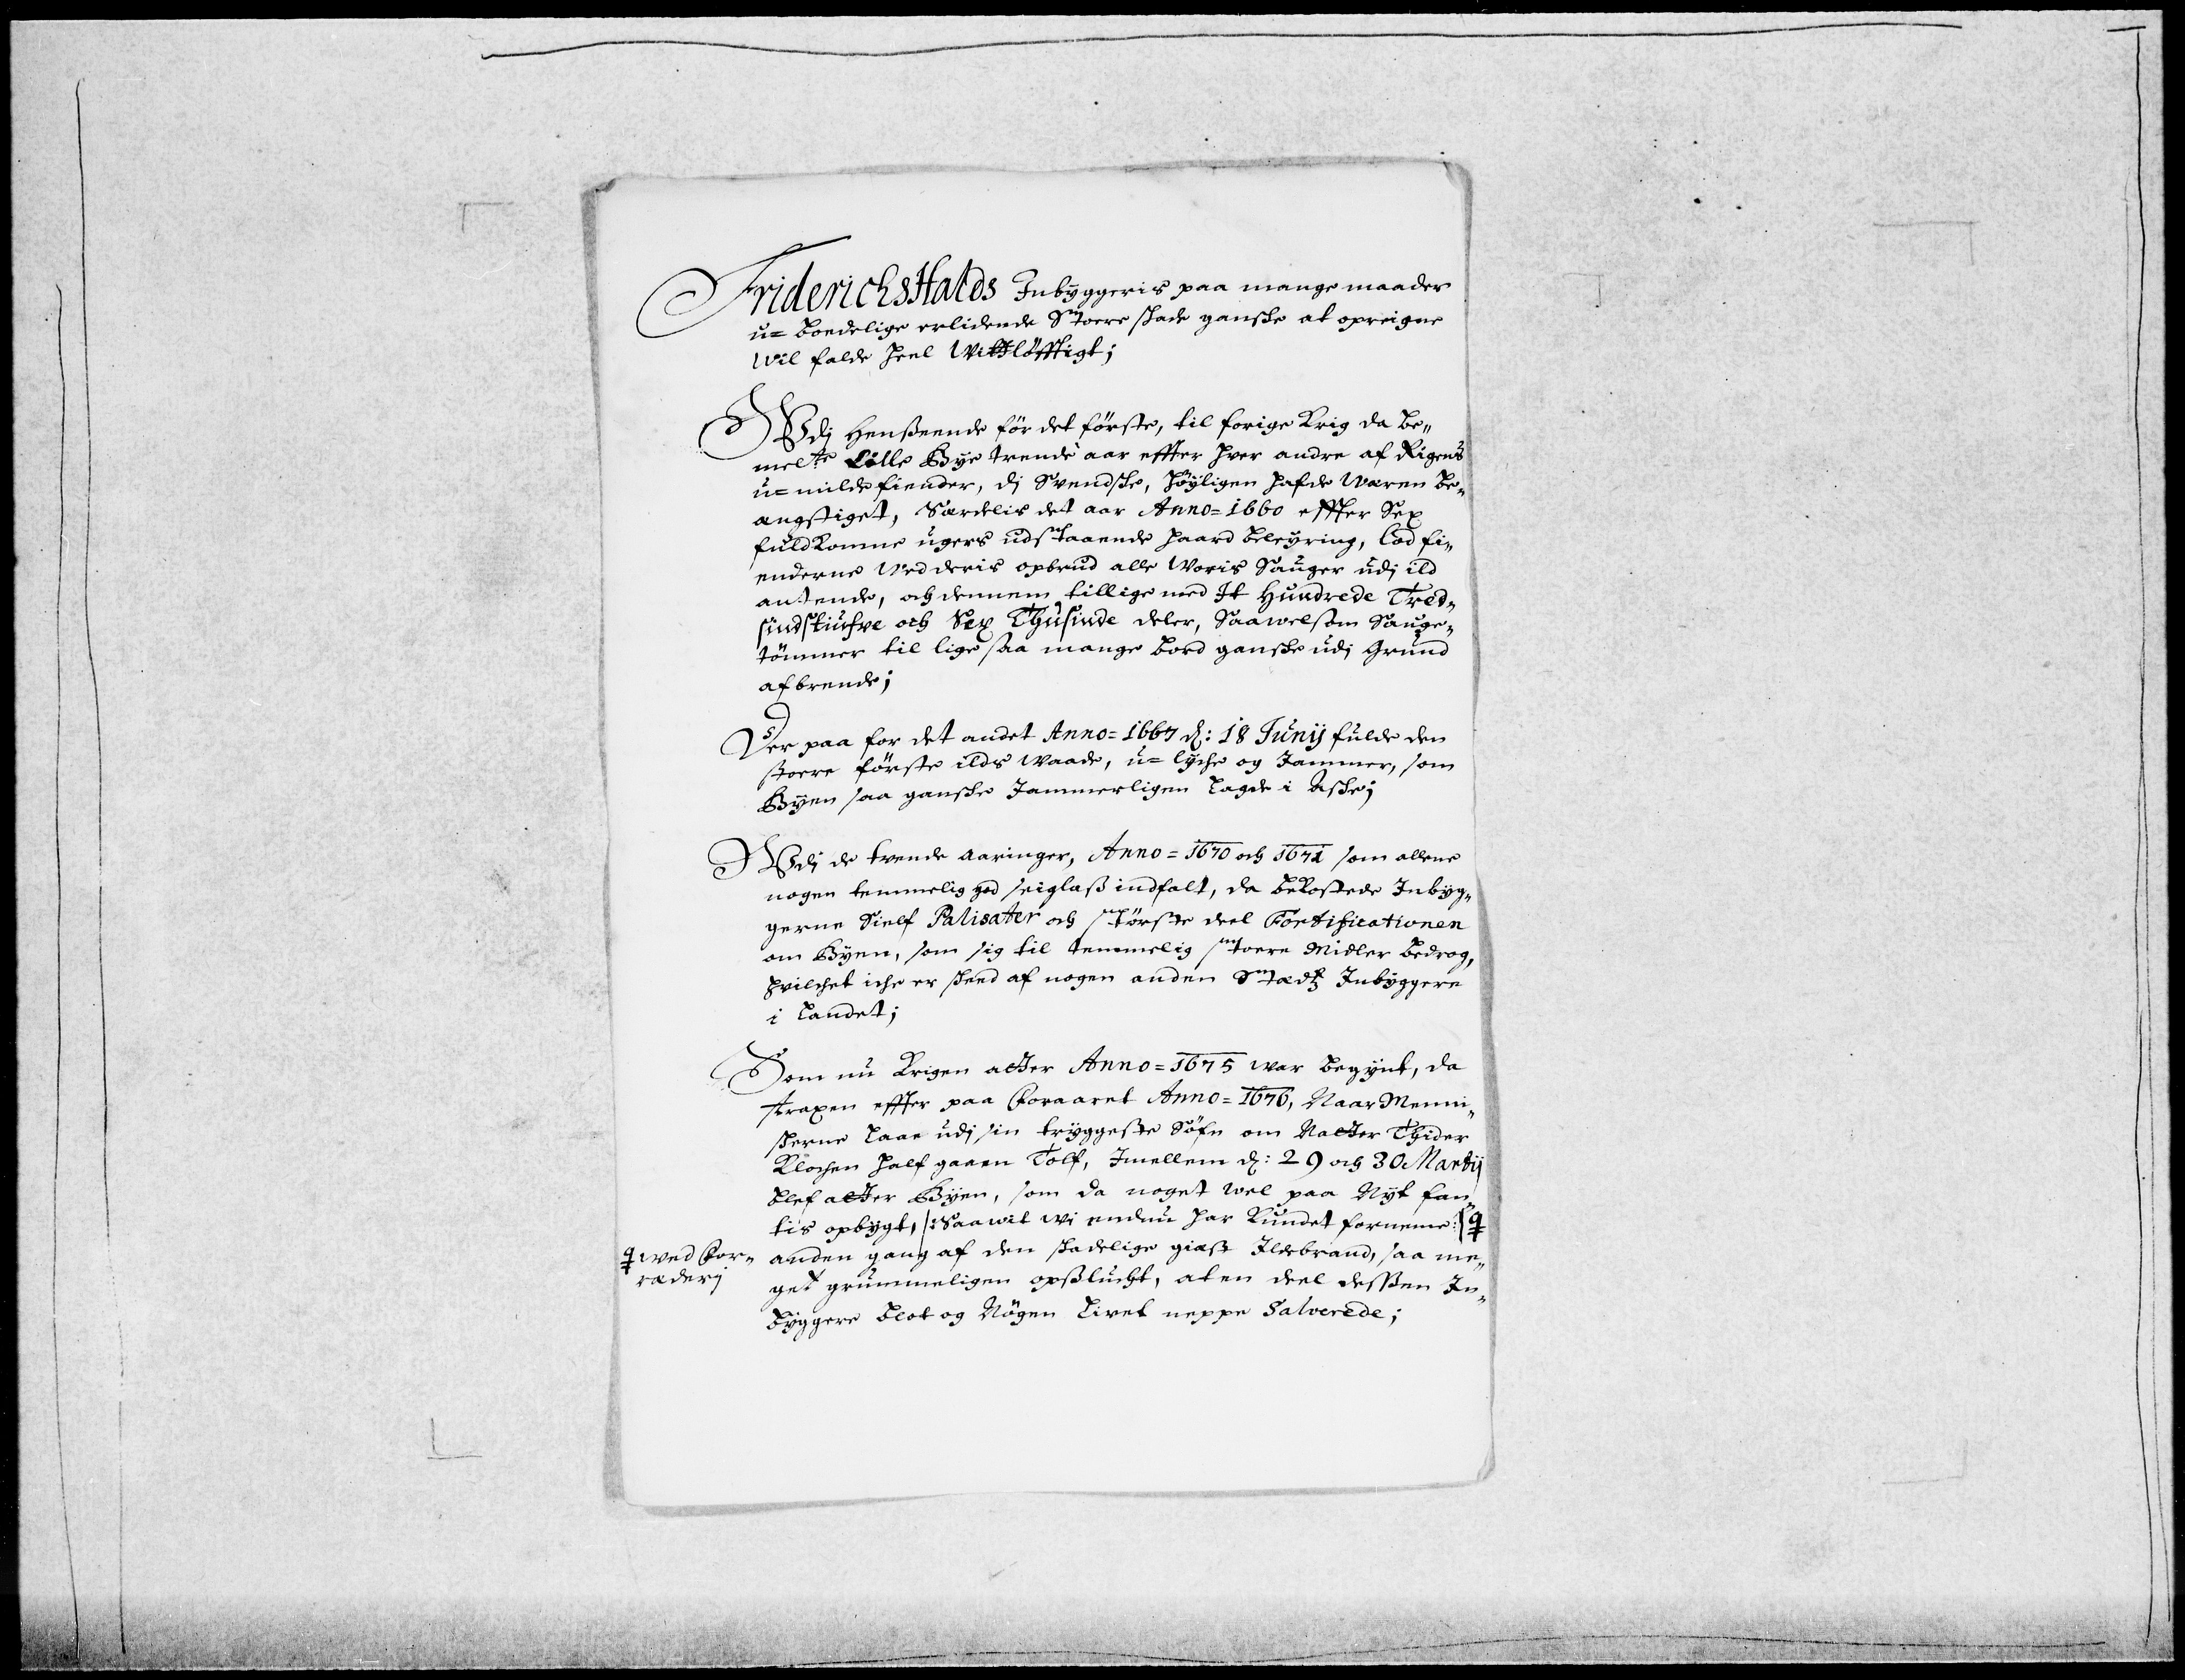 FriderichsHalds Inbÿggeris paa mange maader
u= boedelige erlidende Stoere skade ganske at opreigne
Wil falde heel Wittlöfftigt;
Udj Henseende för det förste, til forige Krig da be„
melte Lille Bÿe trende aar effter hver andre af Rigens
u= milde fiender, dj Svendske, höÿligen hafde Waren be„
ængstiget, Særdelis det aar Anno= 1660 effter Sex
fuldkomne ugers udstaaende haard beleÿring, lod fi„
enderne Ved deris opbrud alle Woris Sauger udj ild
antende, och dennem tillige med It Hundrede Tred„
sindstiufve och Sex Thusinde deler, Saawelsom Sauge„
tömmer til lige saa mange bord ganske udj Grund
afbrende;
Der paa for det andet Anno= 1667 d: 18 Junij fulde den
stoere förste ilds waade, u= lÿche og Jammer, som
Bÿen saa ganske Jammerligen Lagde i Aske;
Udj de tvende Aaringer, Anno= 1670 och 1671 som allene
nogen temmelig god seiglass indfalt, da bekostede Inbÿg„
gerne Sielf Palisater och störste deel Fortificationen
om Bÿen, som sig til temmelig stoere Midler bedrog,
hvilchet iche er skeed af nogen anden Stædtz Inbÿggere
i Landet;
Som nu Krigen atter Anno= 1675 war begÿnt, da
straxen effter paa Foraaret Anno= 1676, Naar Menni„
skerne Laae udj sin trÿggeste Söfn om Natter Thider
Klochen half gaaen Tolf, Imellem d: 29 och 30 Martij
blef atter Bÿen, som da noget wel paa Nÿt fan„
tis opbÿgt, /: Saawit wi endnu har Kundet forneme :/
anden gang af den skadelige giæst Ildebrand, saa me„
get grummeligen opslucht, at en deel dessen In„
bÿggere blot og Nögen Livet neppe Salverede;
wed For„
ræderj